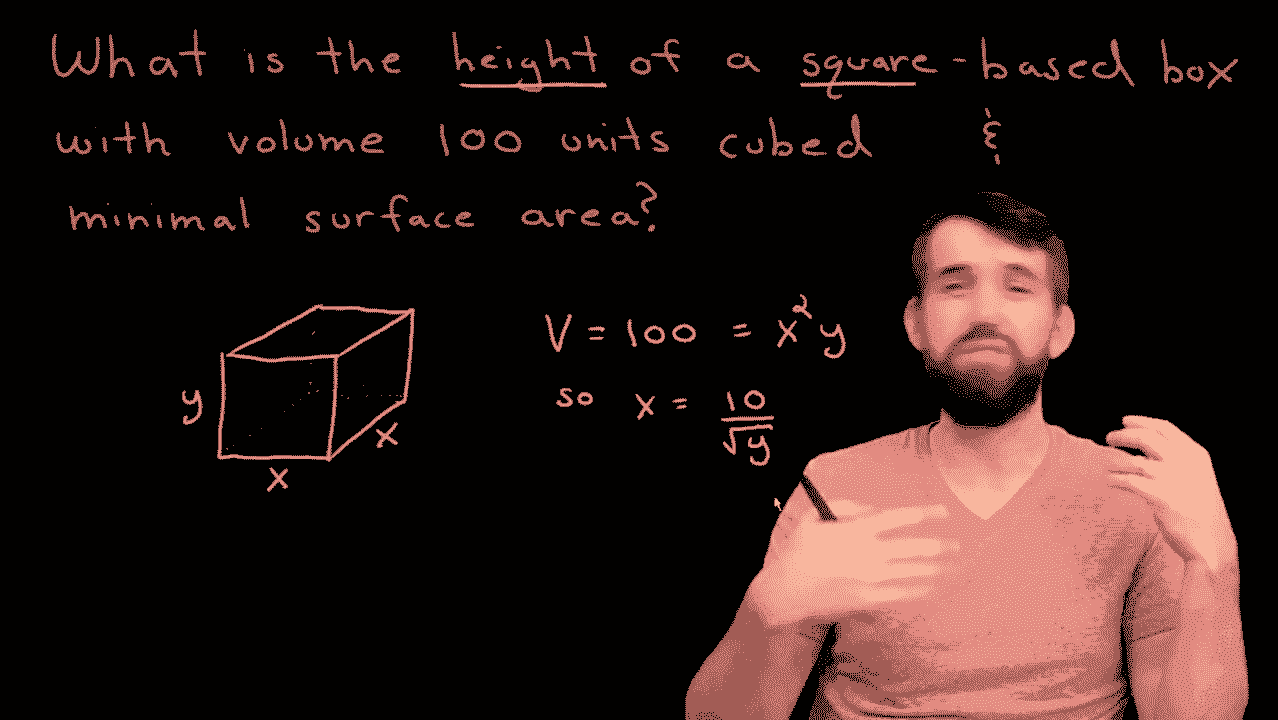 What is the height of a square-based box
with volume 100 units cubed &
minimal surface area?
V = 100 = x²y
so x = 10/√y
y
x
x